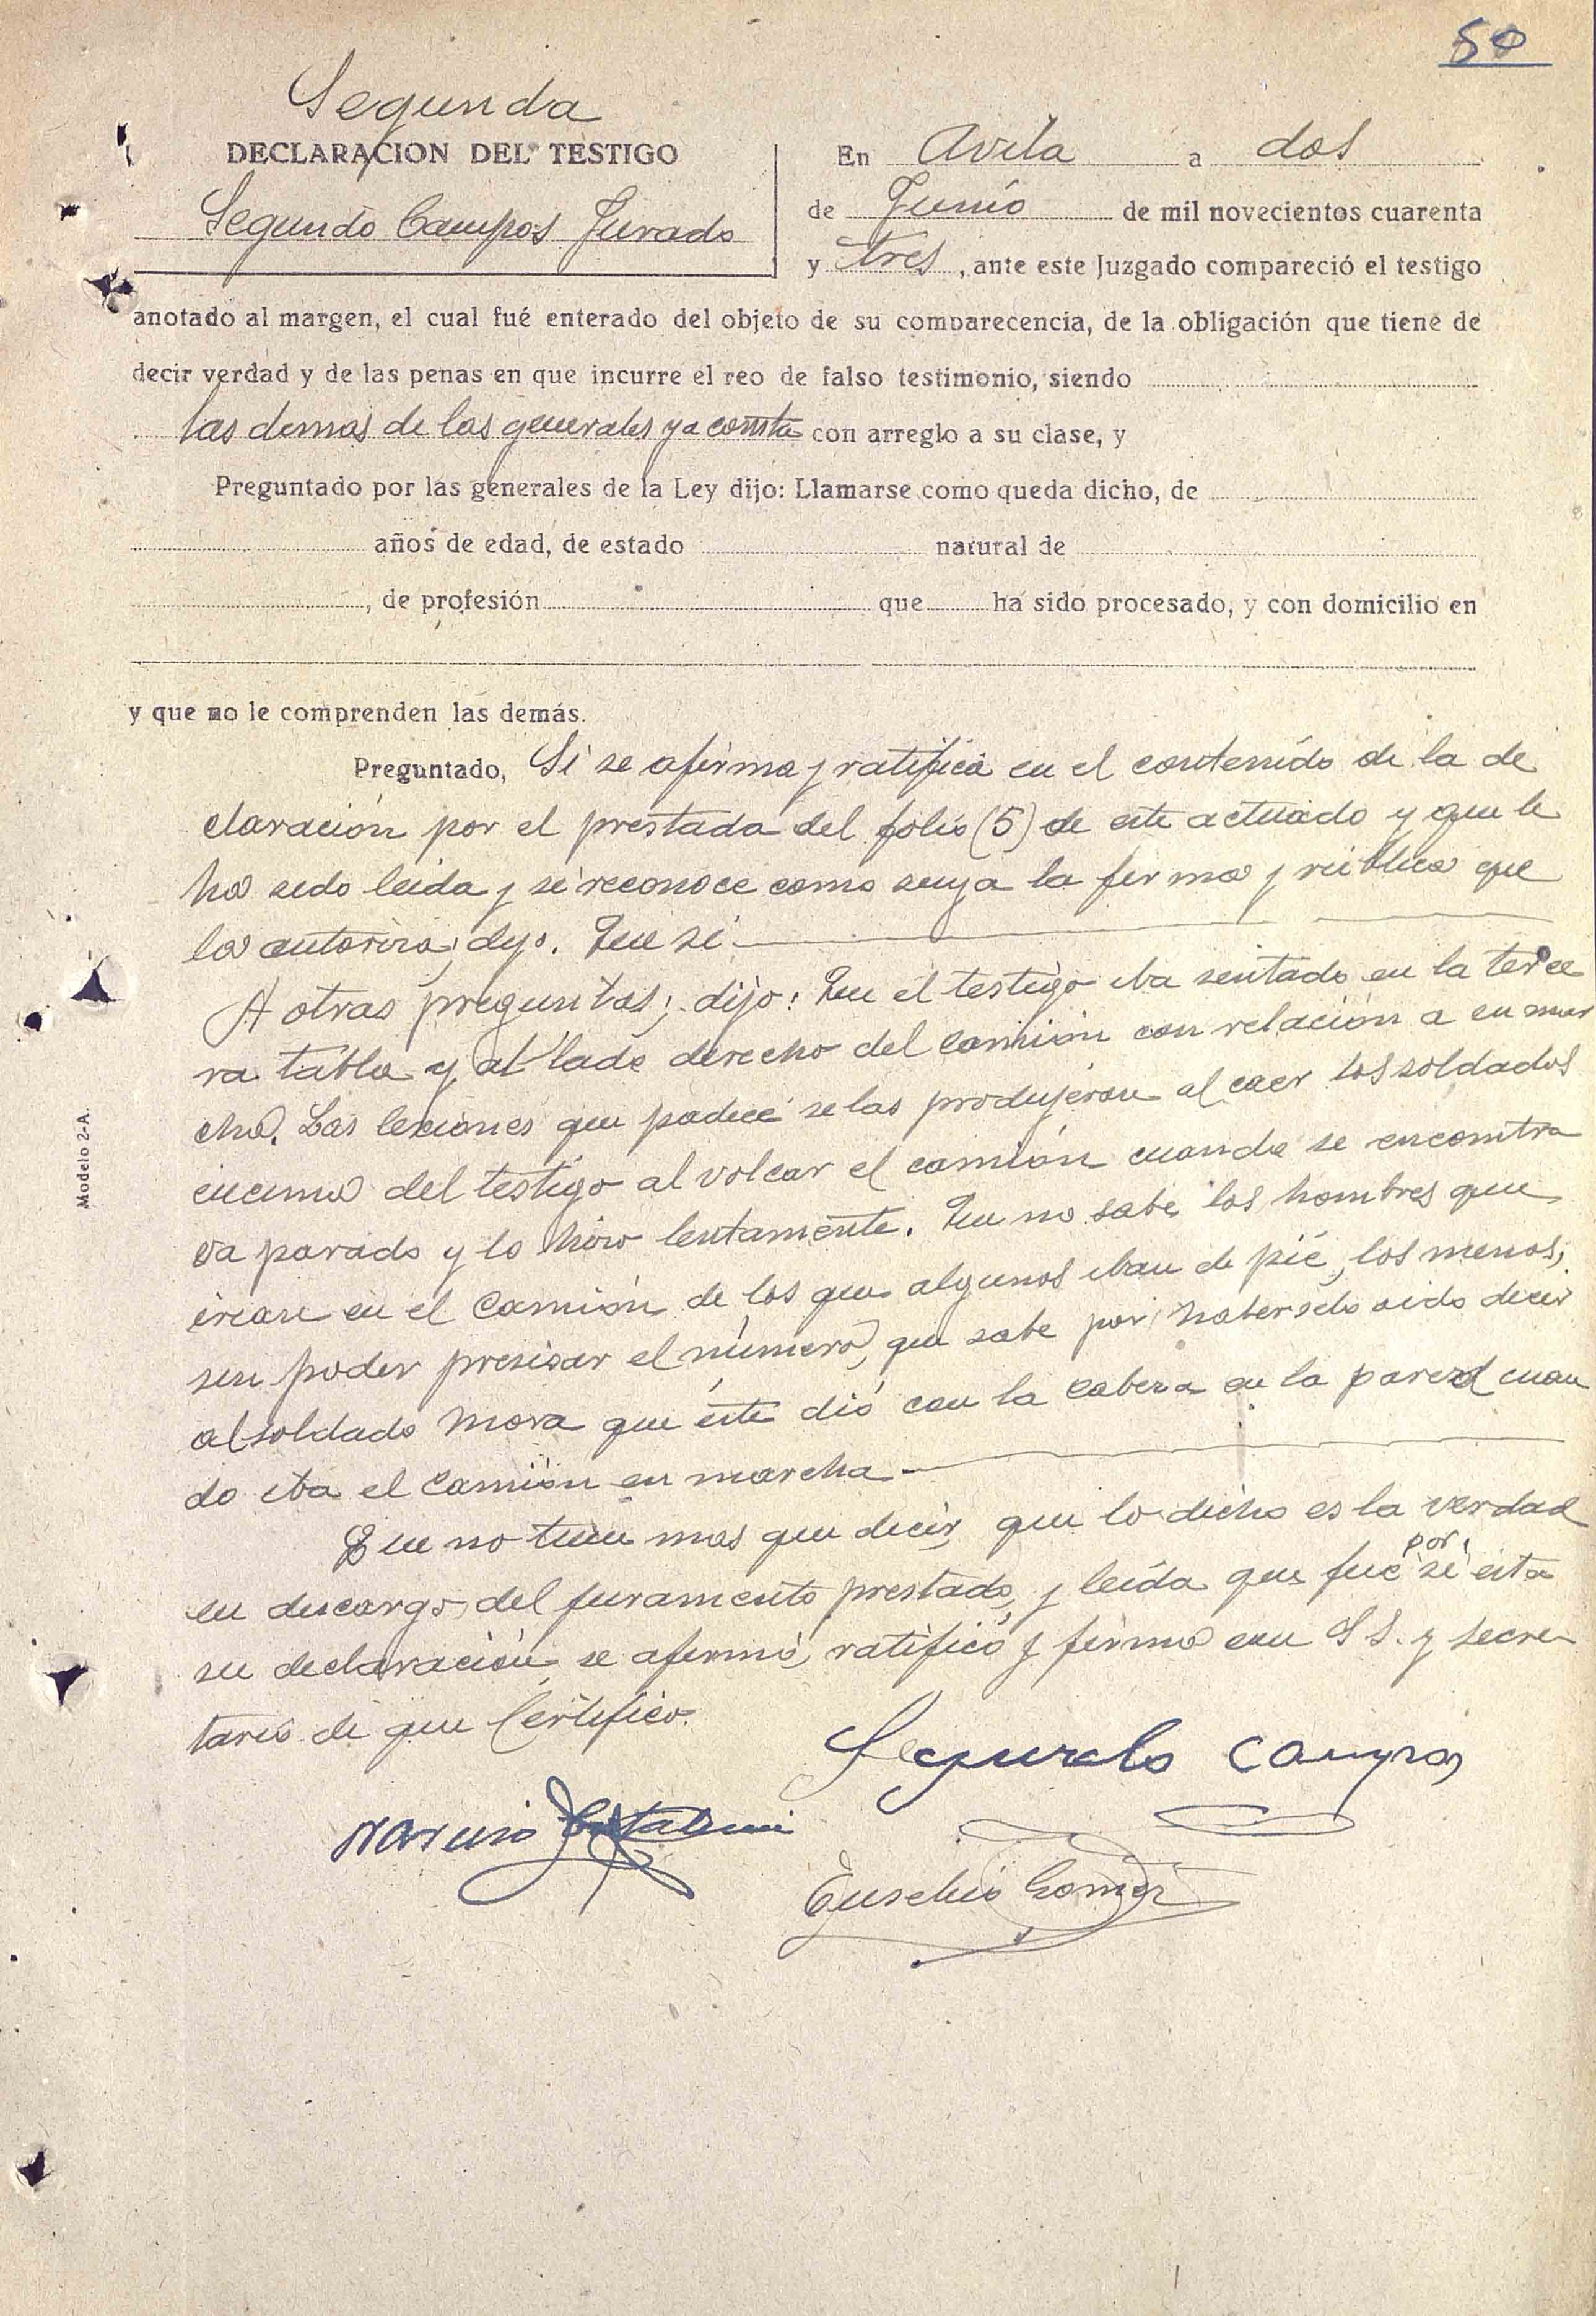 50
Segunda
DECLARACION DEL TESTIGO
Segundo Campos Jurado
En Avila a dos
de Junio de mil novecientos cuarenta
y tres, ante este Juzgado compareció el testigo
anotado al margen, el cual fué enterado del objeto de su comparecencia, de la obligación que tiene de
decir verdad y de las penas en que incurre el reo de falso testimonio, siendo
las demas de las generales ya consta con arreglo a su clase, y
Preguntado por las generales de la Ley dijo: Llamarse como queda dicho, de
años de edad, de estado natural de
, de profesión que ha sido procesado, y con domicilio en
y que no le comprenden las demás.
Preguntado, Si se afirma y ratifica en el contenido de la de
claración por el prestada del folio (5) de este actuado y que le
ha sido leida y si reconoce como suya la firma y rubrica que
la autoriza; dijo. Que si
A otras preguntas; dijo: Que el testigo iba sentado en la terce
ra tabla y al lado derecho del camión con relación a su mar
cha. Las lesiones que padece se las produjeron al caer los soldados
encima del testigo al volcar el camión cuando se encontra
va parado y lo hizo lentamente. Que no sabe los hombres que
irian en el camión de los que algunos iban de pié, los menos,
sin poder presisar el número, que sabe por haberselo oido decir
al soldado Mora que éste dió con la cabeza en la pared cuan
do iba el camión en marcha
Que no tiene mas que decir, que lo dicho es la verdad
en descargo del juramento prestado, y leída que fue por si esta
su declaración se afirmó, ratificó y firma con S S. y secre
tario de que Certifico.
Segundo Campos
Narciso
Eusebio Gomez
Modelo 2-A.